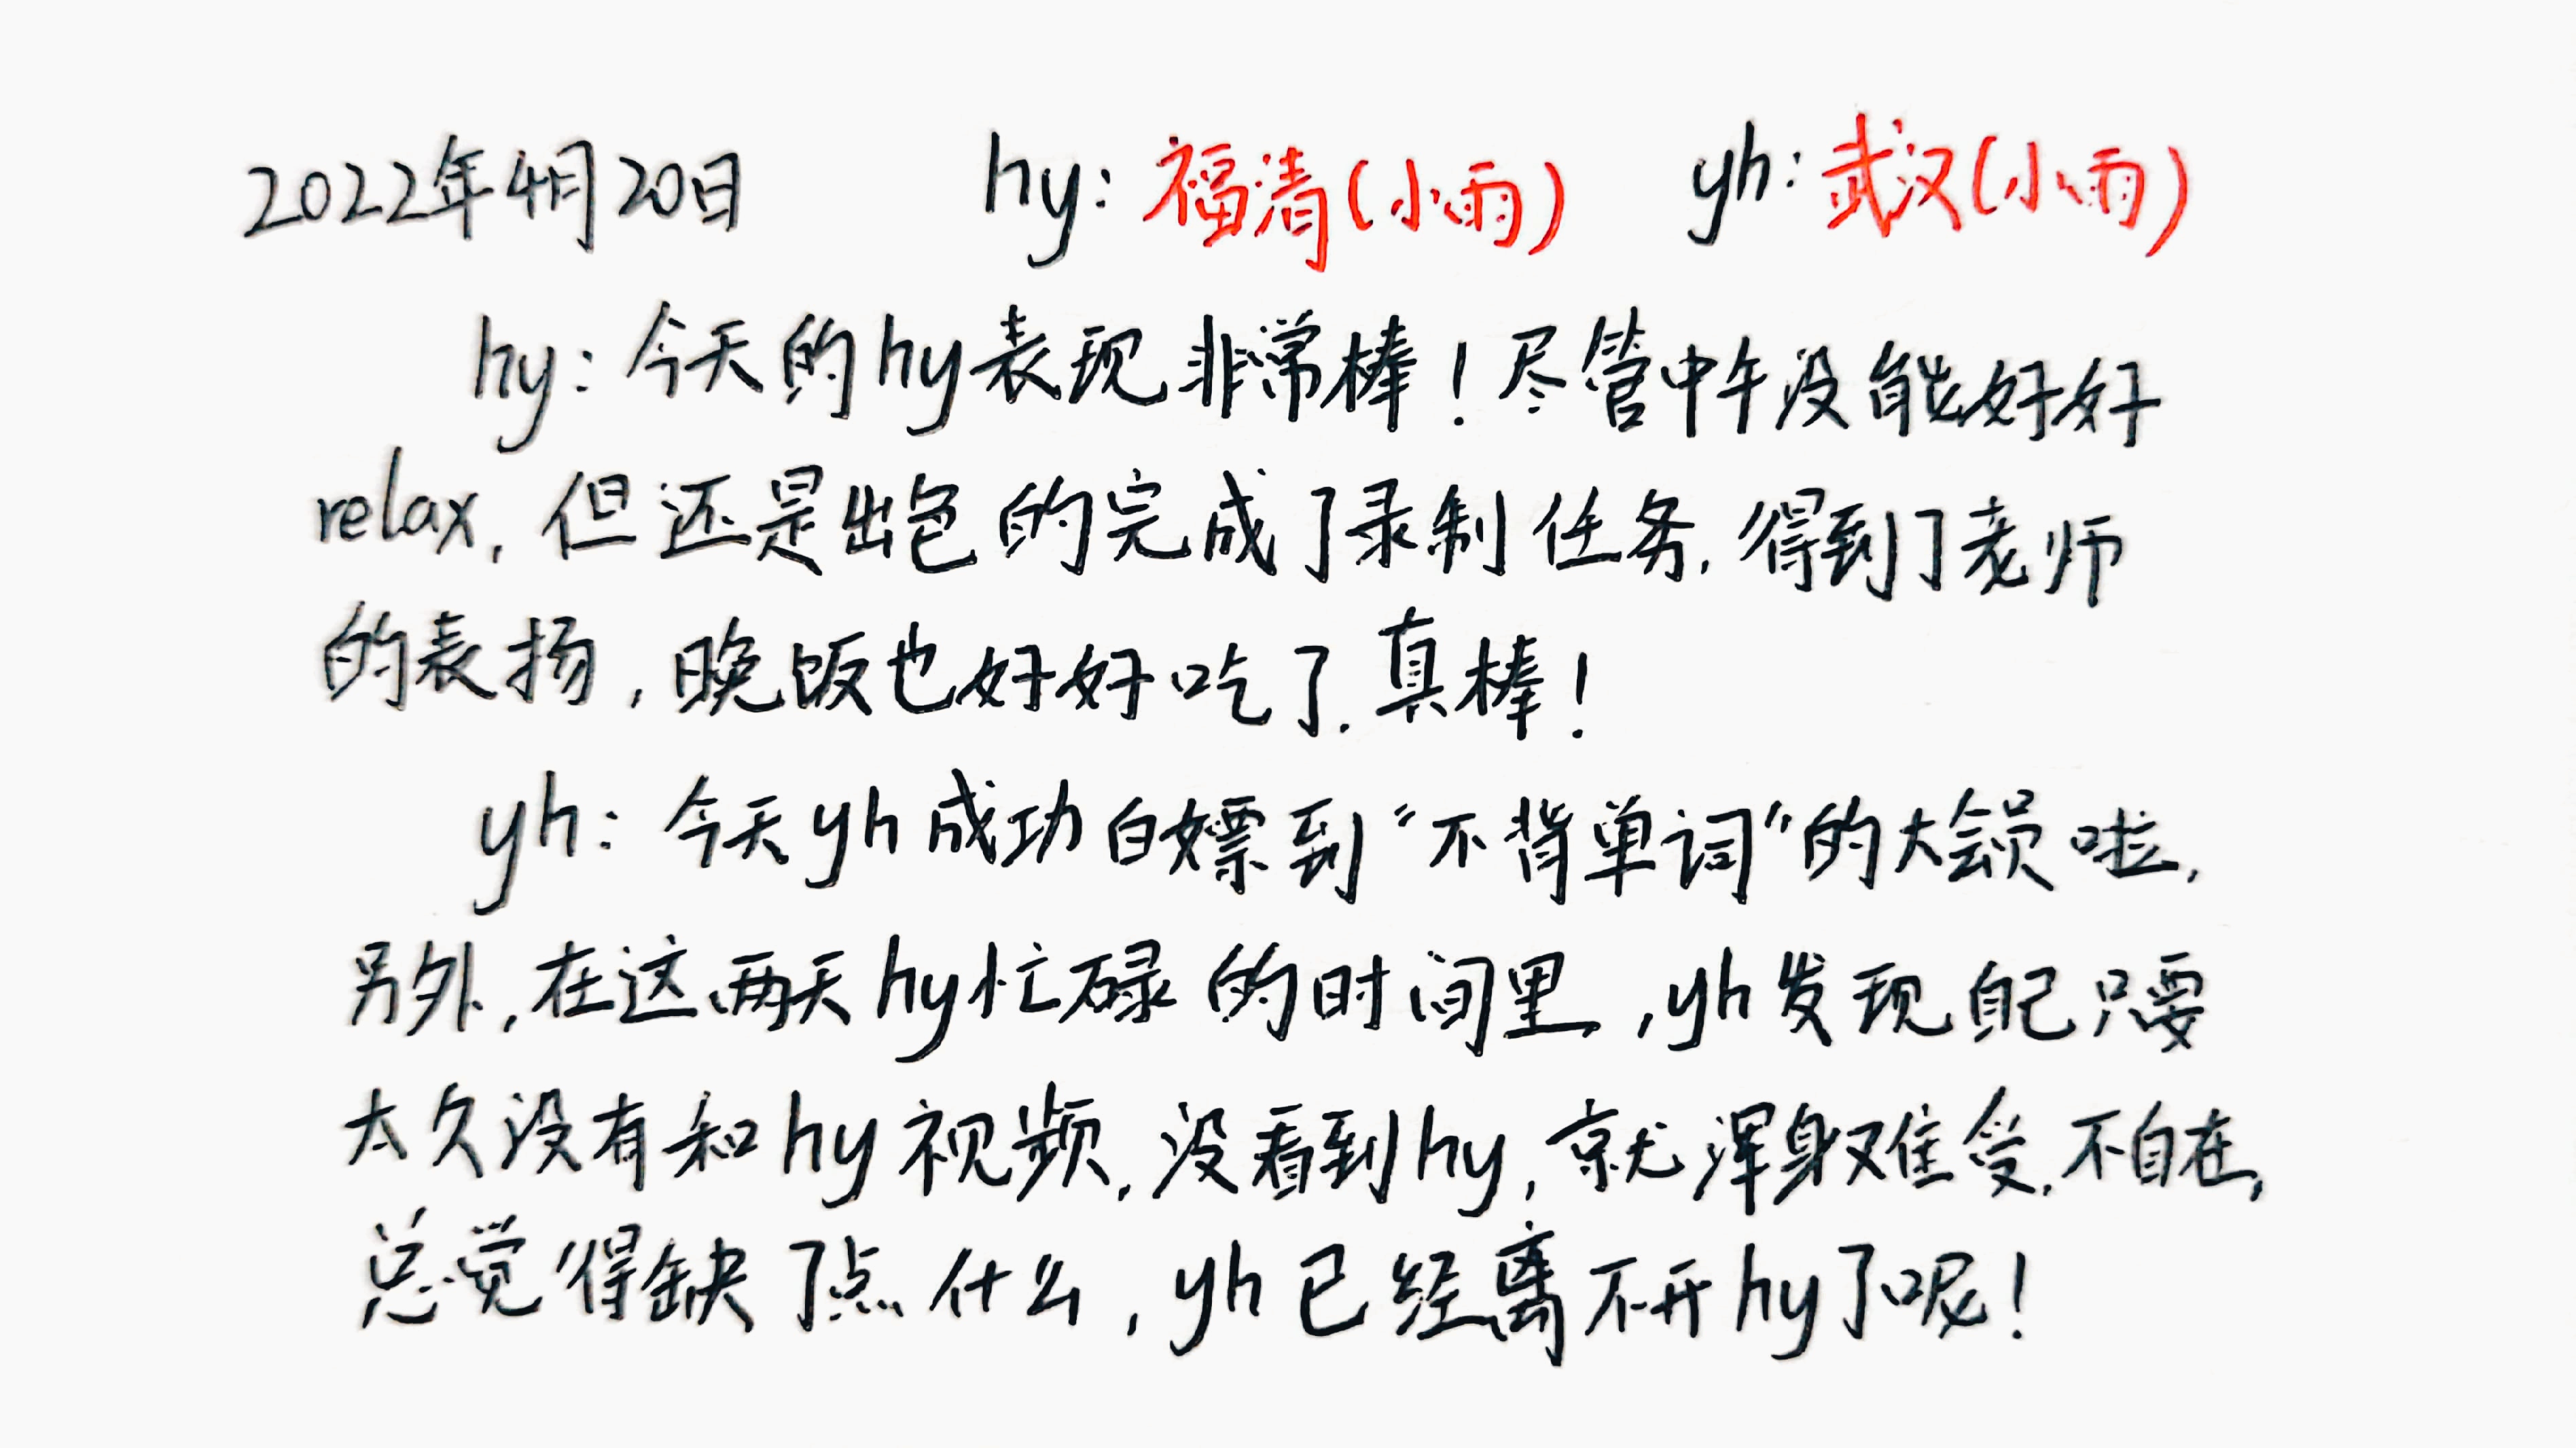 2022年4月20日 hy:福清(小雨) yh:武汉(小雨)
hy:今天的hy表现非常棒!尽管中午没能好好
relax,但还是出色的完成了录制任务,得到了老师
的表扬,晚饭也好好吃了.真棒!
yh:今天yh成功白嫖到“不背单词”的大会员啦,
另外,在这两天hy忙碌的时间里,yh发现自己只要
太久没有和hy视频,没看到hy,就浑身难受.不自在,
总觉得缺了点什么,yh已经离不开hy了呢!